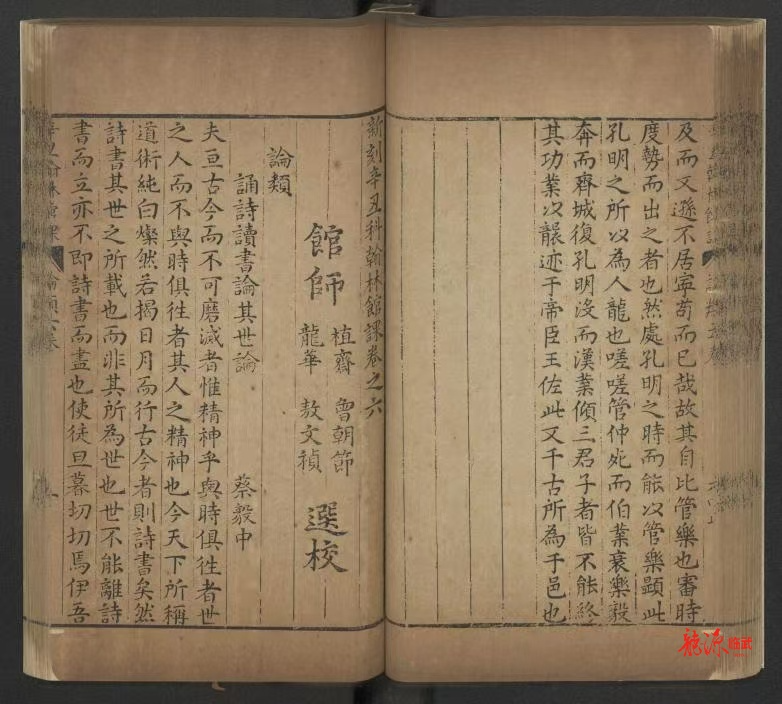 及而又遜不居寧苟而已哉故其自比管樂也審時
度勢而出之者也然處孔明之時而能以管樂顕此
孔明之所以為人龍也嗟嗟管仲死而伯業衰樂毅
奔而齊城復孔明沒而漢業傾三君子者皆不能終
其功業以襲迹于帝臣王佐此又千古所為于邑也
新刻辛丑科翰林館課卷之六
館師
植齋 曾朝節
龍華 敖文禎
選校
論類
誦詩讀書論其世論
蔡毅中
夫亘古今而不可磨滅者惟精神乎與時俱徃者世
之人而不與時俱徃者其人之精神也今天下所稱
道術純白燦然若揭日月而行古今者則詩書矣然
詩書其世之所載也而非其所為世也世不能離詩
書而立亦不即詩書而盡也使徒旦暮切切焉伊吾
論類六卷
龍源 臨武